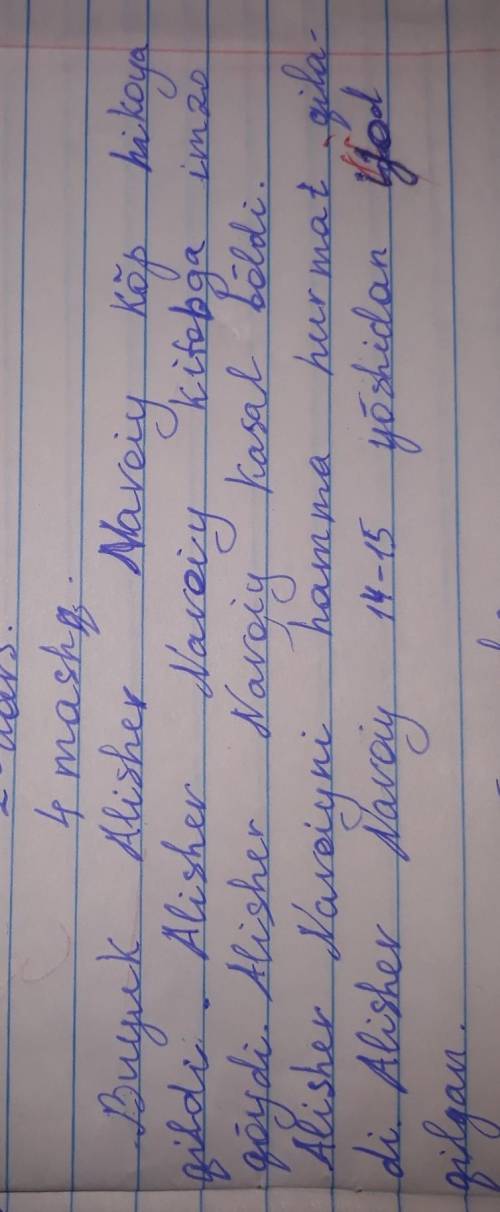 4 mashq.
Buyuk Alisher Navoiy kŏp hikoya
qildi. Alisher Navoiy kitobga imzo
qōydi. Alisher Navoiy kasal bōldi.
Alisher Navoiyni hamma hurmat qila-
di. Alisher Navoiy 14-15 yōshidan ijod
qilgan.